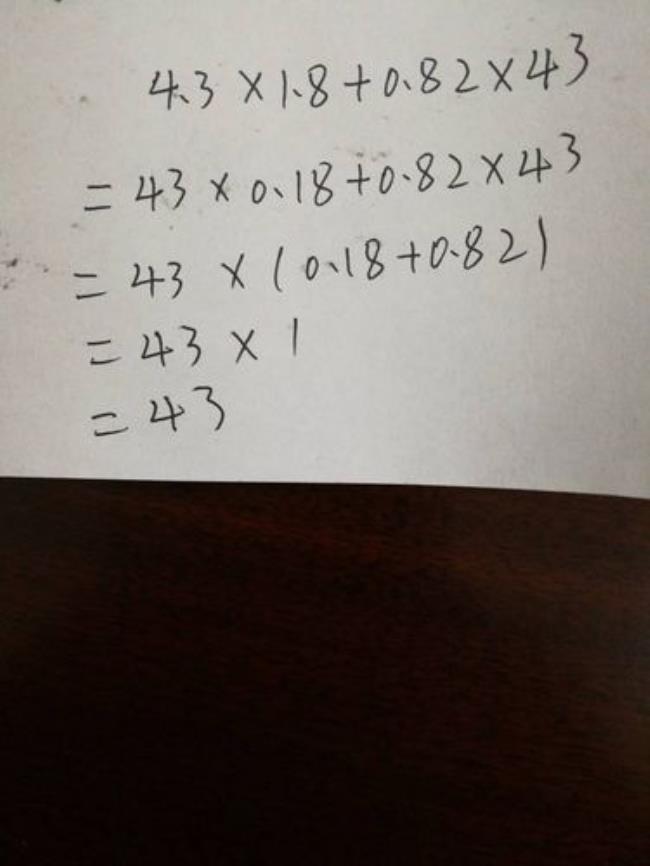 4.3×1.8+0.82×43
=43×0.18+0.82×43
=43×(0.18+0.82)
=43×1
=43